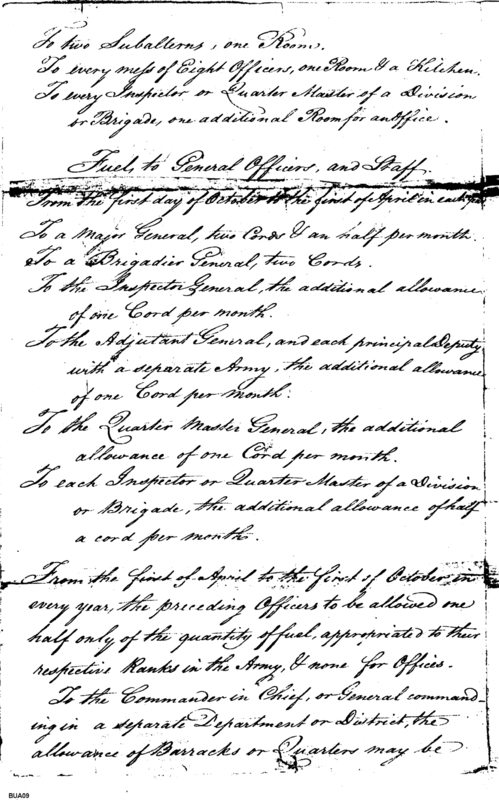 To two Subalterns, one Room.
To every mess of Eight Officers, one Room & a Kitchen.
To every Inspector or Quarter Master of a Division
or Brigade, one additional Room for an Office.
Fuel, to General Officers, and Staff
From the first day of October to the first of April in each
To a Major General, two Cords & an half per month.
To a Brigadier General, two Cords.
To the Inspector General, the additional allowance
of one Cord per month.
To the Adjutant General, and each principal Deputy
with a separate Army, the additional allowance
of one Cord per month.
To the Quarter Master General, the additional
allowance of one Cord per month.
To each Inspector or Quarter Master of a Division
or Brigade, the additional allowance of half
a cord per month.
From the first of April to the first of October, in
every year, the preceding Officers to be allowed one
half only of the quantity of fuel, appropriated to their
respective Ranks in the Army, & none for Offices.
To the Commander in Chief, or General command-
ing in a separate Department or District, the
allowance of Barracks or Quarters may be
BUA09